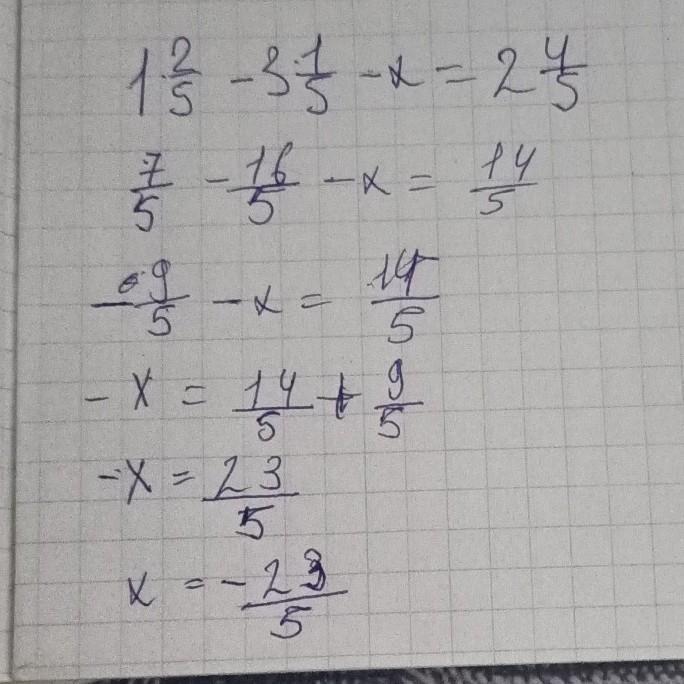 1 2/5 - 3 1/5 - x = 2 4/5
7/5 - 16/5 - x = 14/5
- 9/5 - x = 14/5
- x = 14/5 + 9/5
- x = 23/5
x = - 23/5